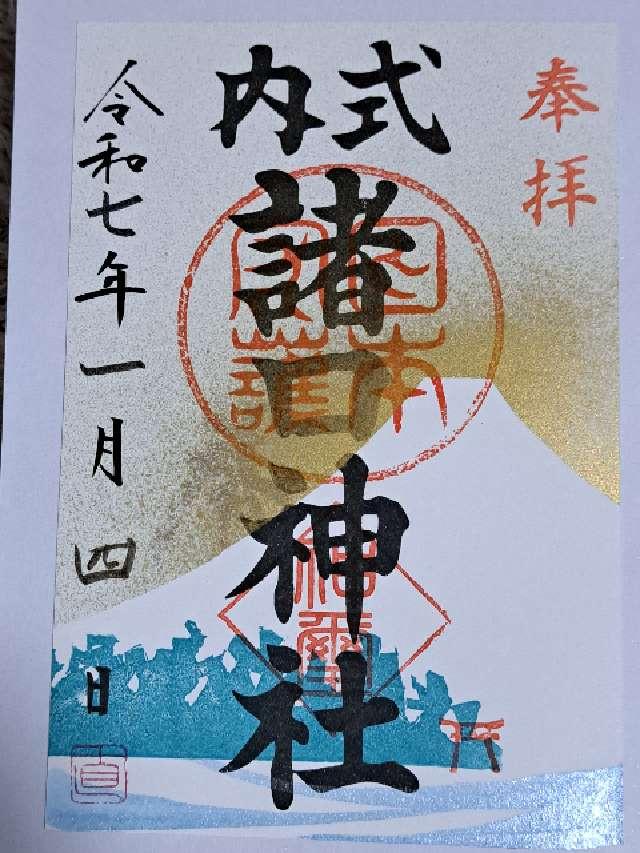 奉拝
式内
諸口神社
令和七年一月四日